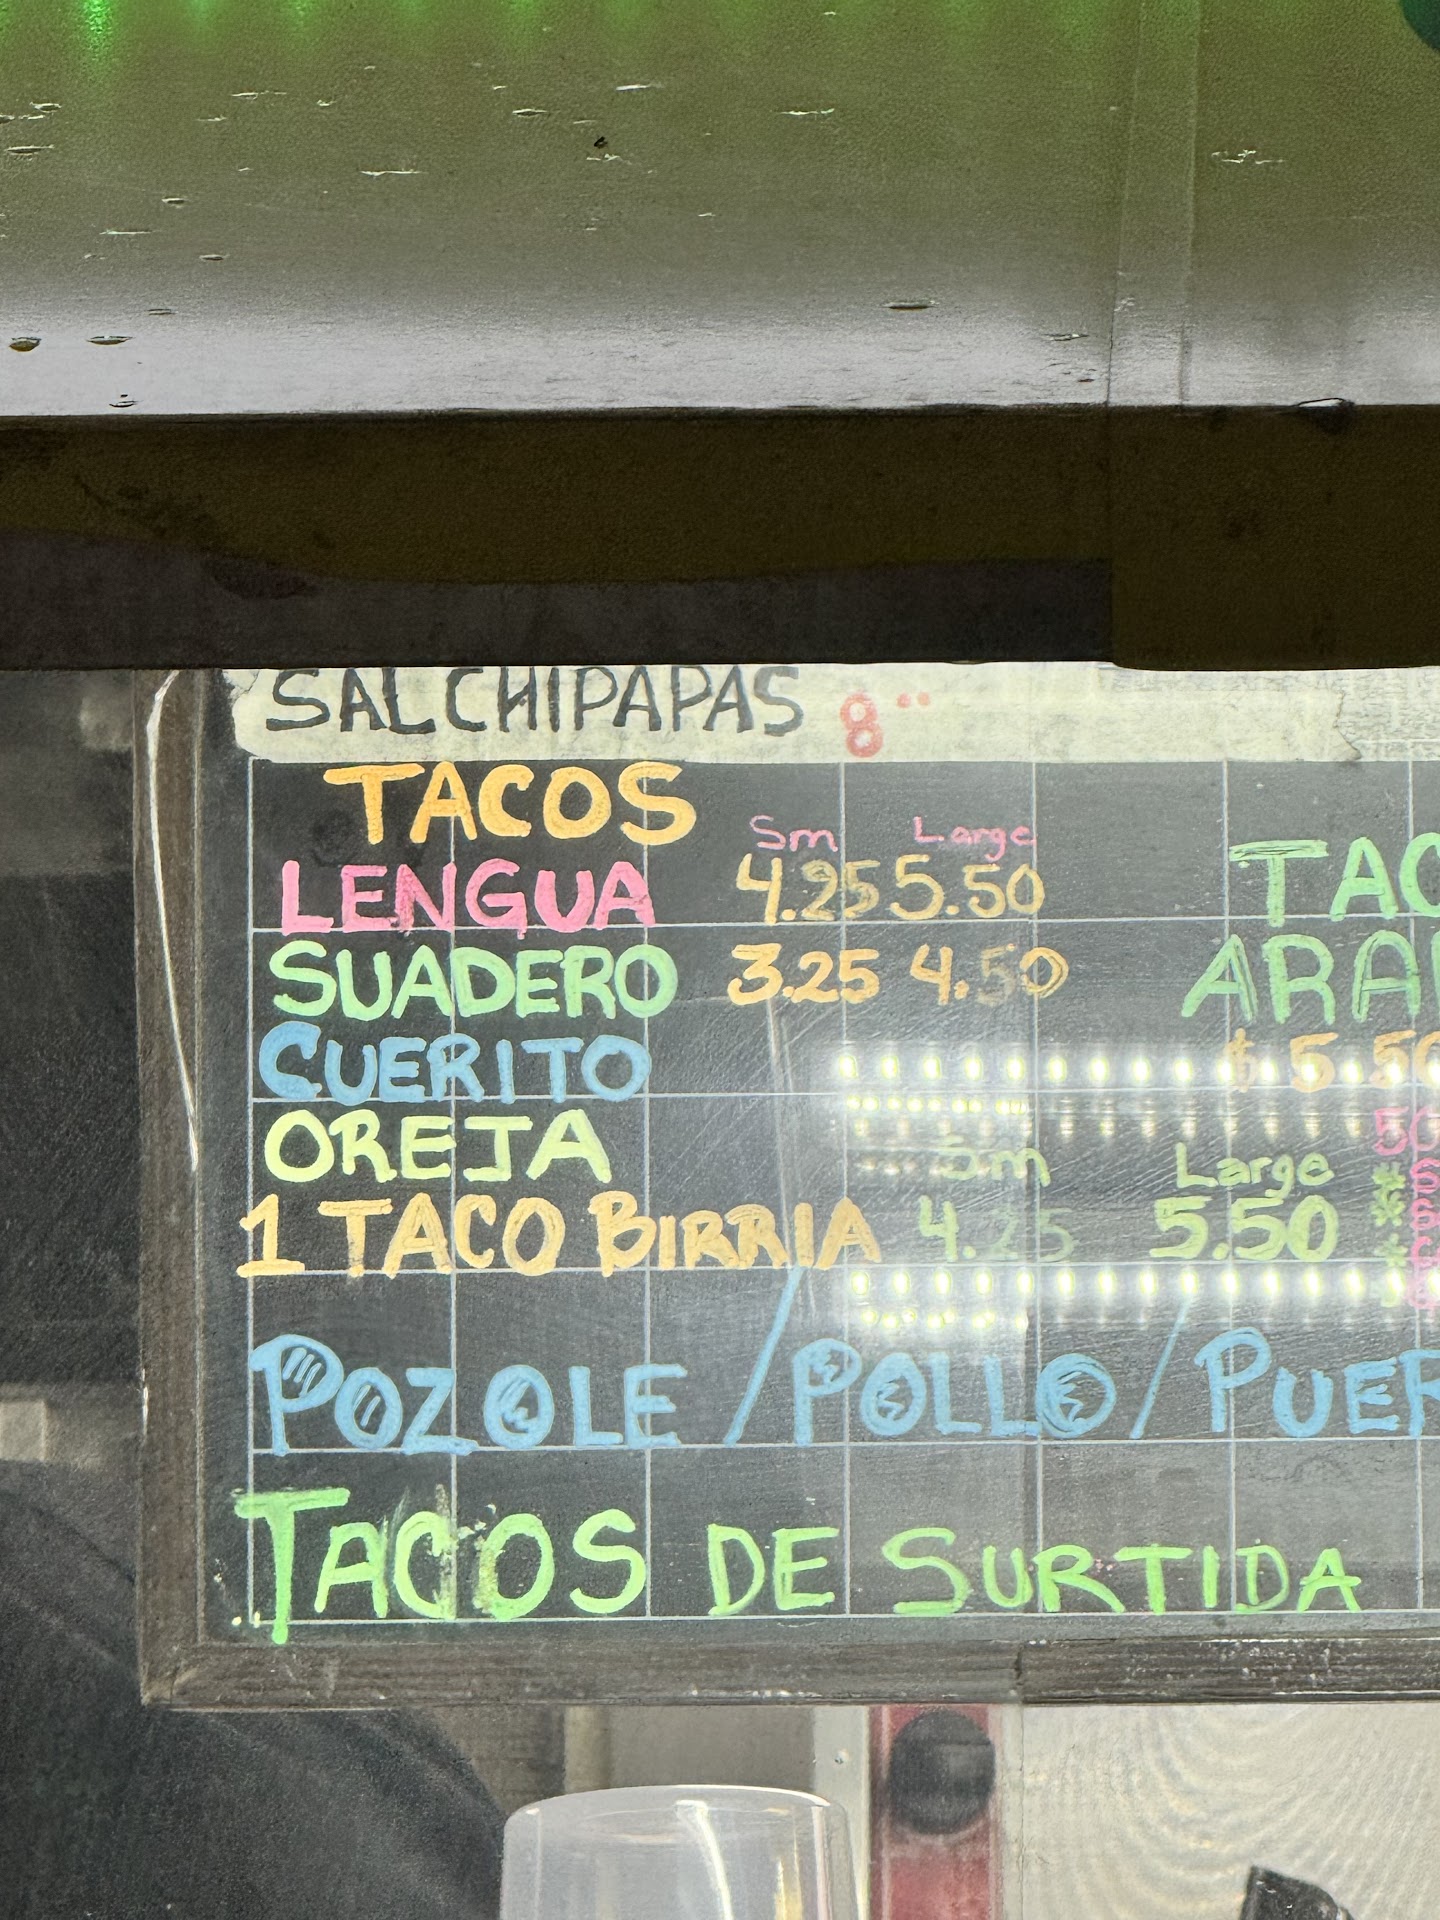 SALCHIPAPAS 8
TACOS
Sm Large
LENGUA 4.25 5.50
SUADERO 3.25 4.50
CUERITO
OREJA
1 TACO BIRRIA
Sm Large
4.25 5.50
POZOLE / POLLO / PUER
TACOS DE SURTIDA
TAC
ARA
$5.50